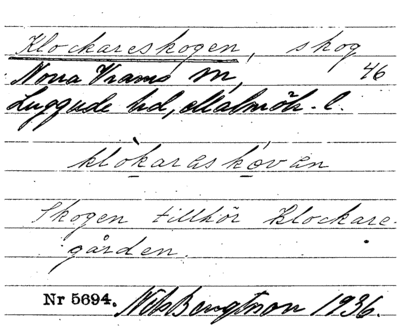 Klockareskogen, skog
Norra Vrams sn, 46
Luggude hd, Malmöh. l.
klòkaraskòvan
Skogen tillhör Klockare-
gården.
Nr 5694. Nils Bengtsson 1936.